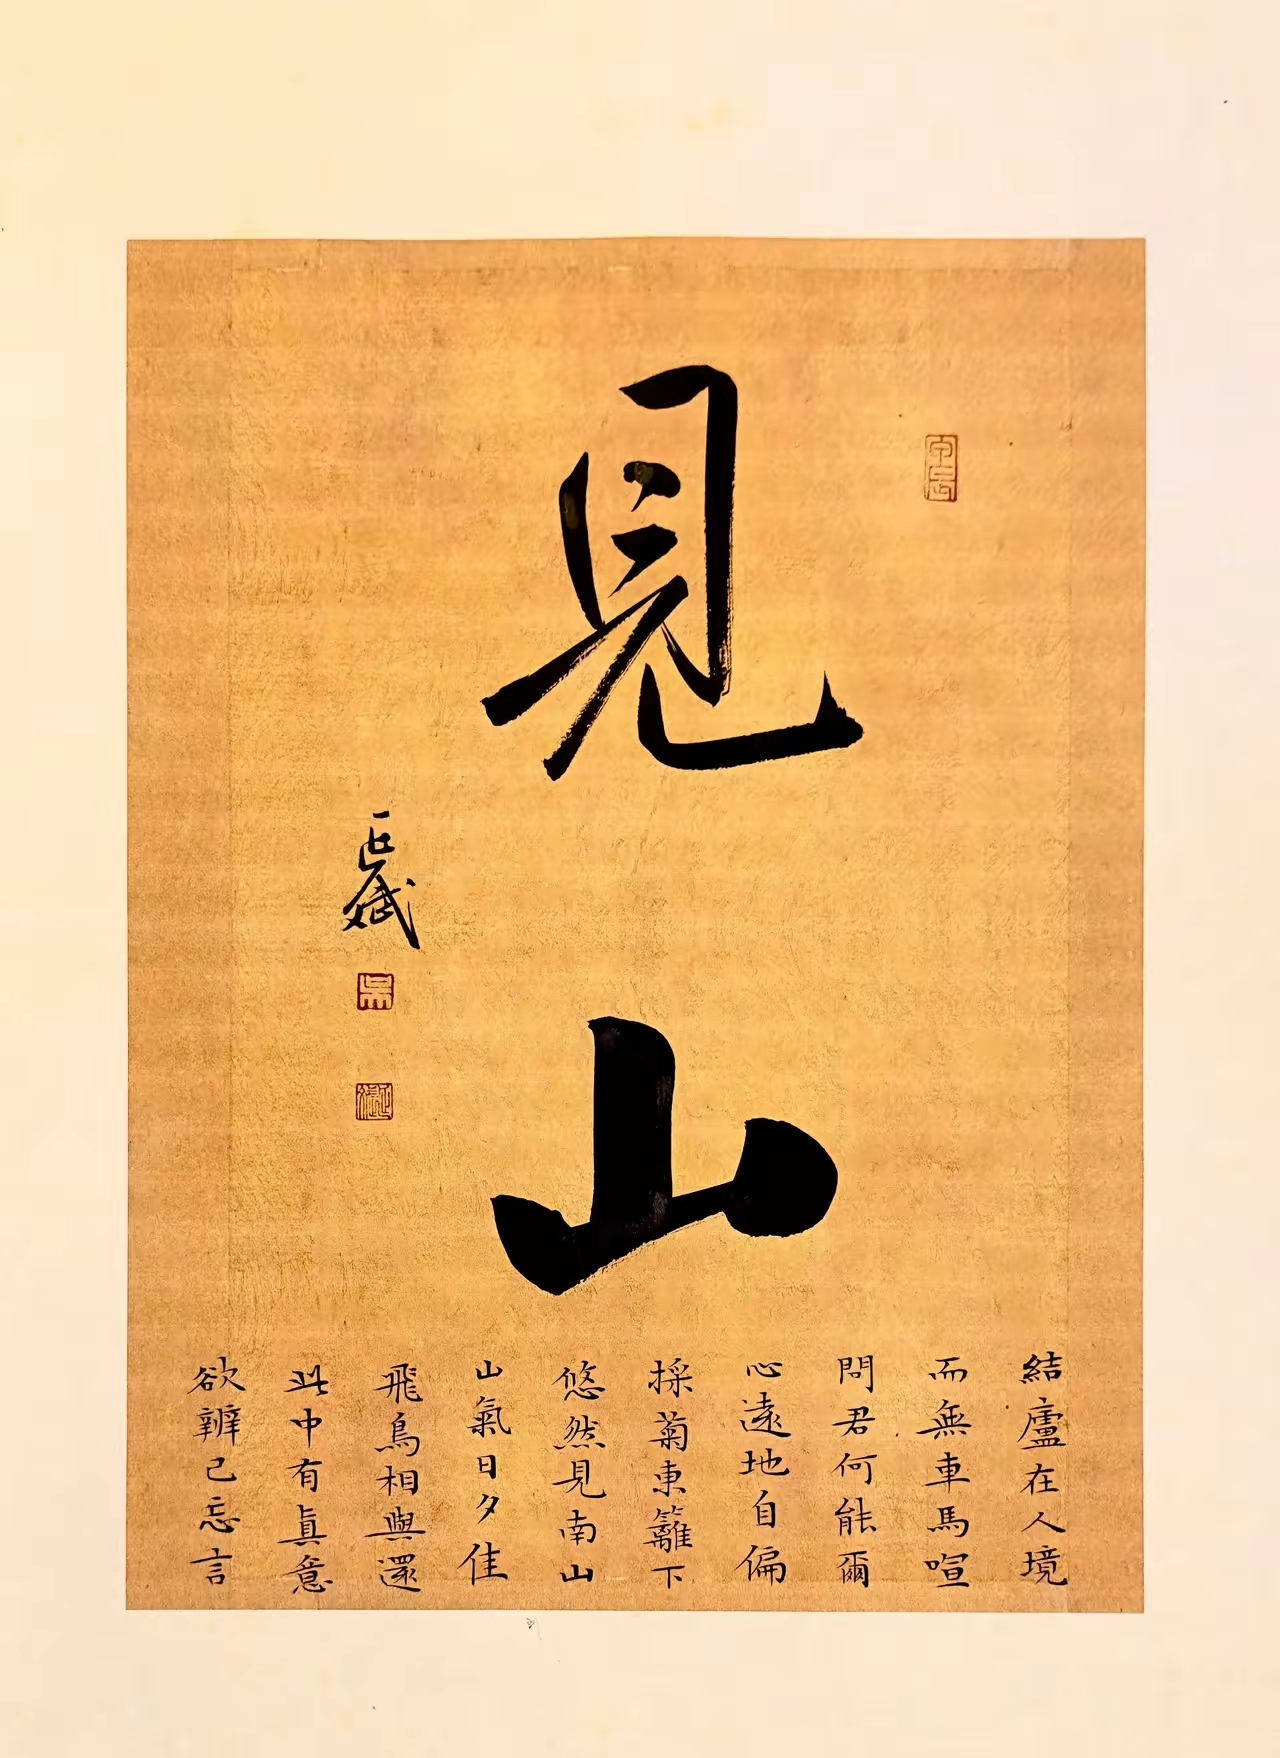 見山
結廬在人境
而無車馬喧
問君何能爾
心遠地自偏
採菊東籬下
悠然見南山
山氣日夕佳
飛鳥相與還
此中有真意
欲辨已忘言